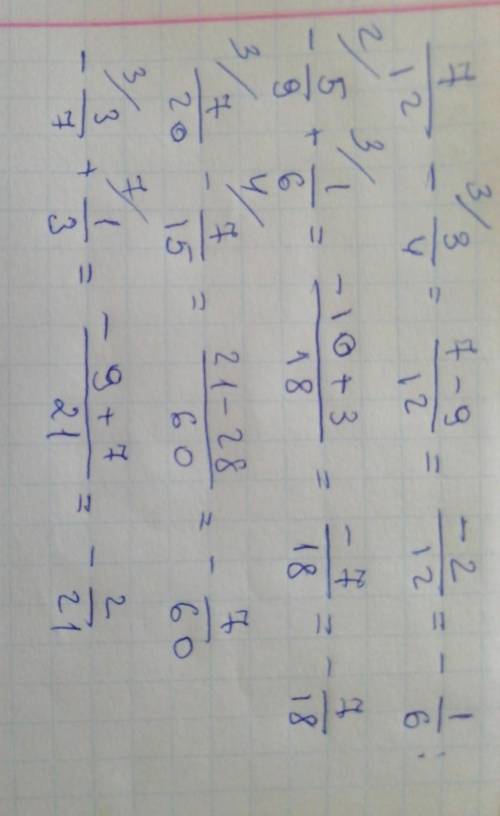 7/12 - 3/ 3/4 = 7-9/12 = -2/12 = - 1/6;
2/ - 5/9 + 3/ 1/6 = -10+3/18 = -7/18 = - 7/18
3/ 7/20 - 4/ 7/15 = 21-28/60 = - 7/60
3/ - 3/7 + 7/ 1/3 = -9+7/21 = - 2/21